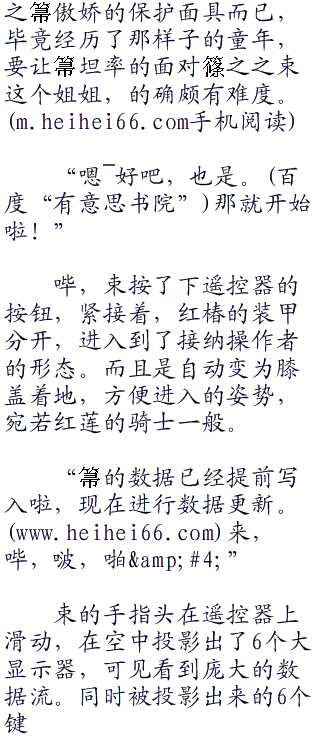 之箒傲娇的保护面具而已，
毕竟经历了那样子的童年，
要让箒坦率的面对篠之之束
这个姐姐，的确颇有难度。
(m.heihei66.com手机阅读)
“嗯¯好吧，也是。(百
度“有意思书院”)那就开始
啦！”
哔，束按了下遥控器的
按钮，紧接着，红椿的装甲
分开，进入到了接纳操作者
的形态。而且是自动变为膝
盖着地，方便进入的姿势，
宛若红莲的骑士一般。
“箒的数据已经提前写
入啦，现在进行数据更新。
(www.heihei66.com)来，
哔，啵，啪&amp;#4;”
束的手指头在遥控器上
滑动，在空中投影出了6个大
显示器，可见看到庞大的数
据流。同时被投影出来的6个
键